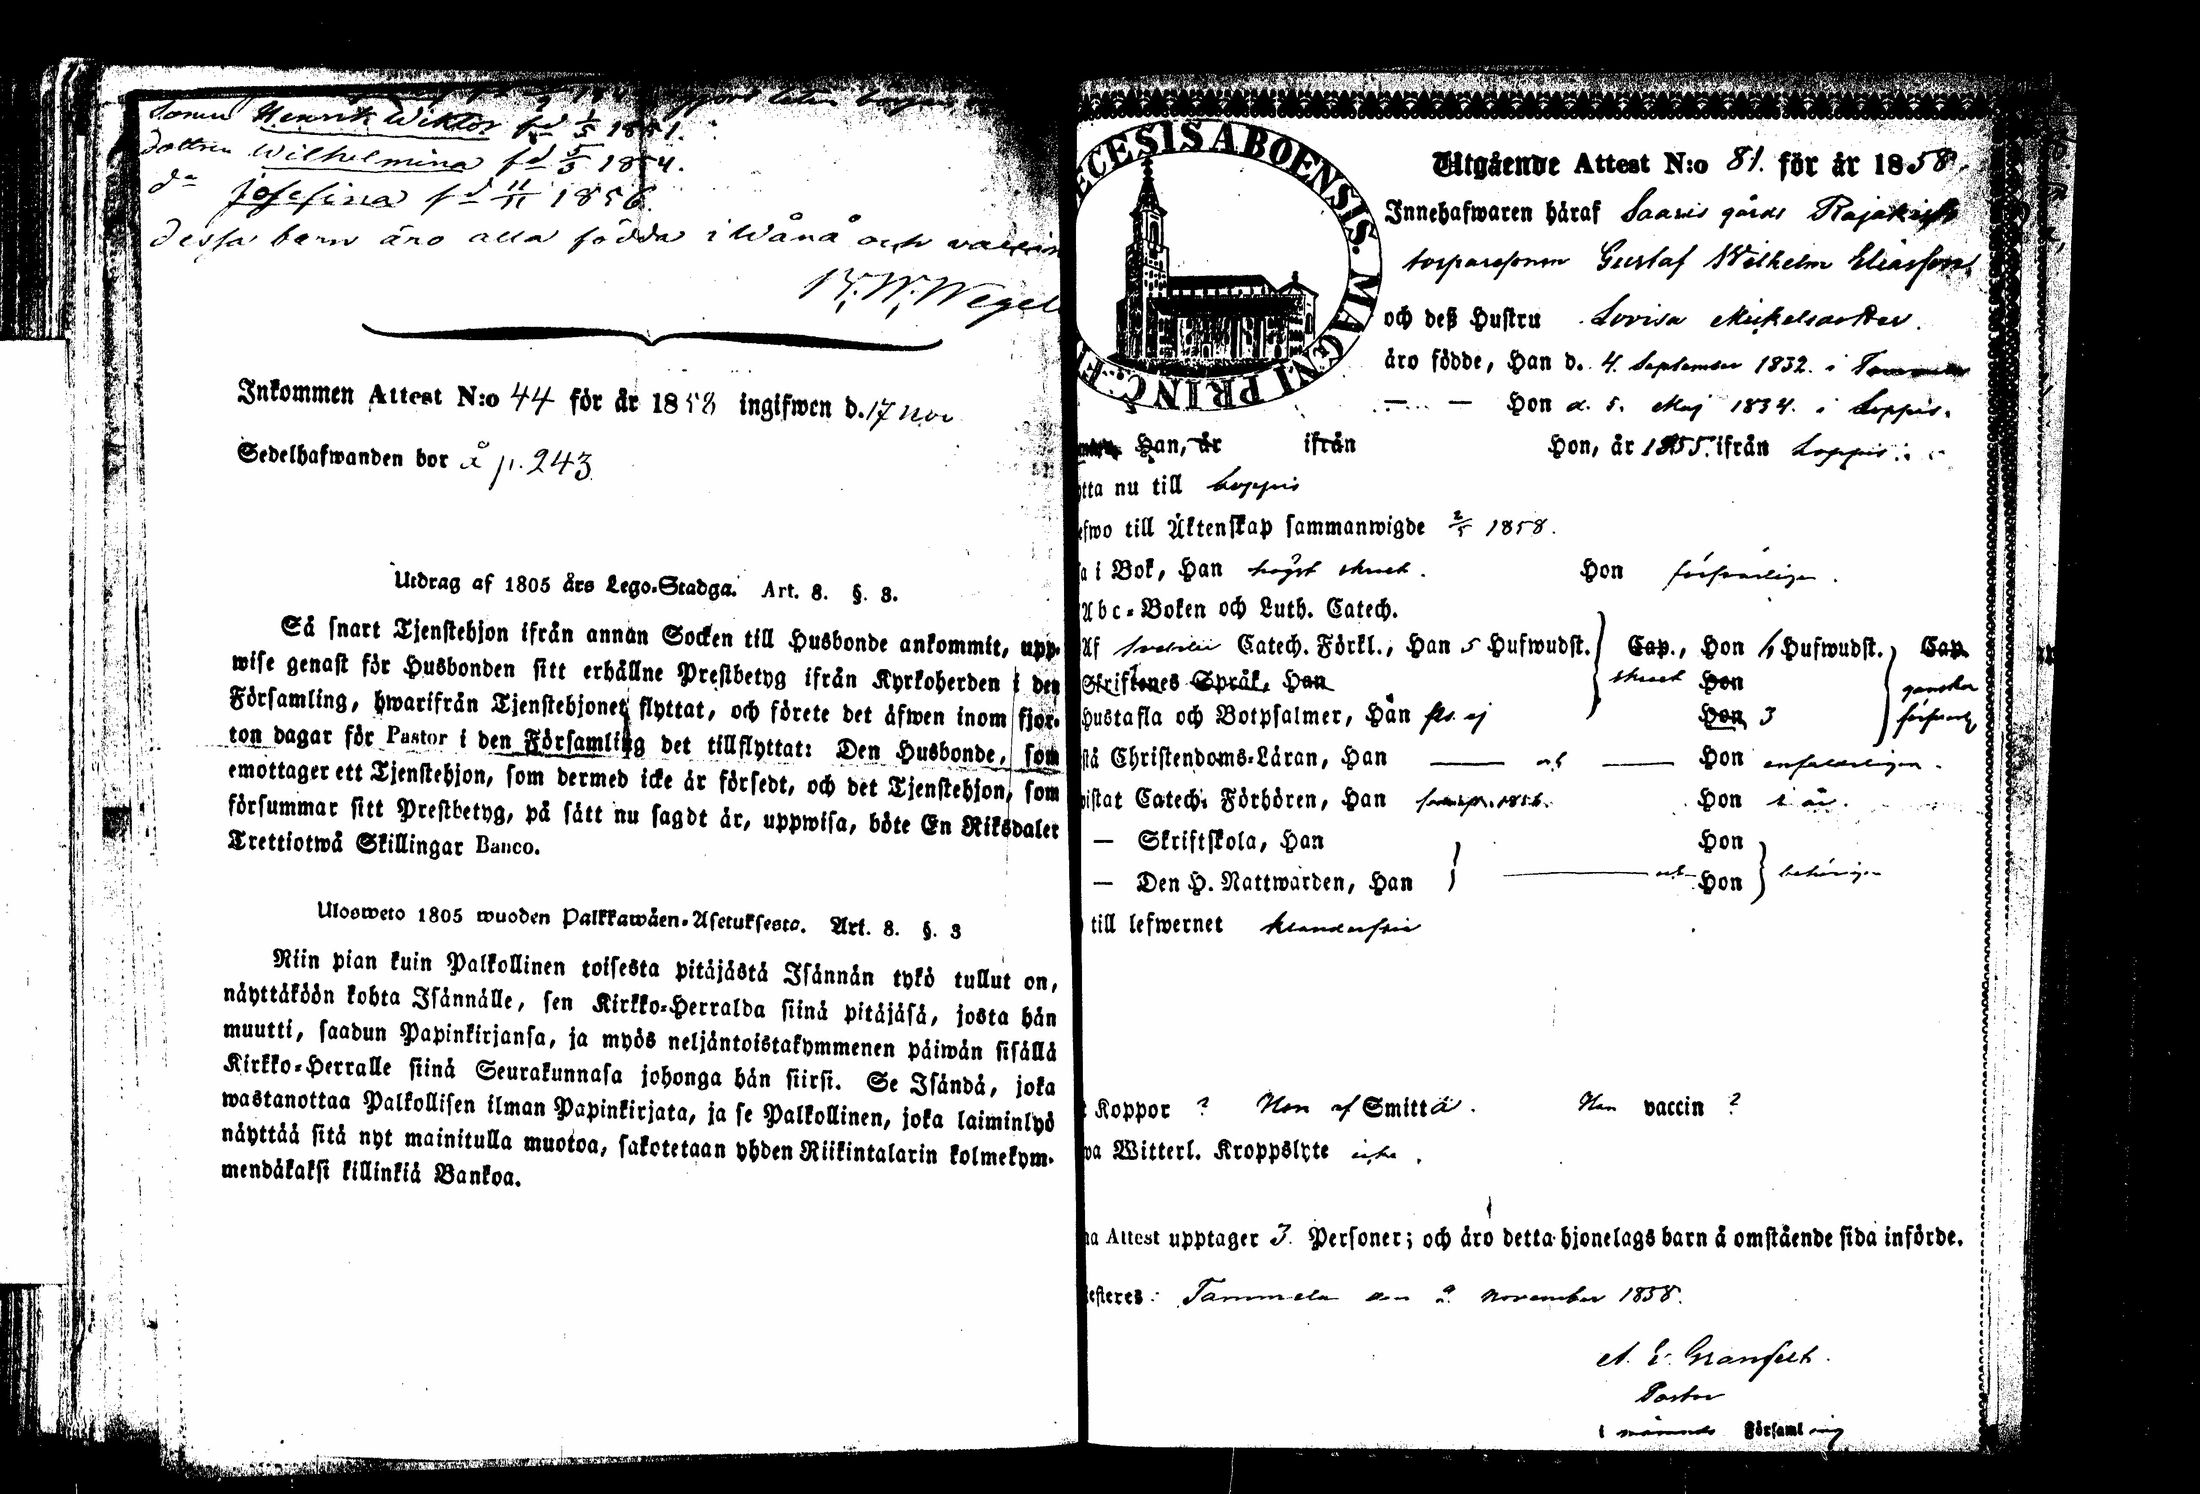 Sonen Henrik Wiktor fd 1/5 1851.
dottren Wilhelmina fd 5/3 1854.
do Josefina fd 11/11 1856.
dessa barn äro alla födda i Wånå och
Wegel
Inkommen Attest N:o 44 för år 1858 ingifwen d. 17 Nov
Sedelhafwanden bor å p. 243
Utdrag af 1805 års Lego-Stadga. Art. 8. §. 3.
Så snart Tjenstehjon ifrån annan Socken till Husbonde ankommit, upp-
wise genast för Husbonden sitt erhållne Prestbetyg ifrån Kyrkoherden i den
Församling, hwarifrån Tjenstehjonet flyttat, och förete det äfwen inom fjor-
ton dagar för Pastor i den Församling det tillflyttat: Den Husbonde, som
emottager ett Tjenstehjon, som dermed icke är försedt, och det Tjenstehjon, som
försummar sitt Prestbetyg, på sätt nu sagdt är, uppwisa, böte En Riksdaler
Trettiotwå Skillingar Banco.
Ulosweto 1805 wuoden Palkkawäen-Asetuksesta. Art. 8. §. 3
Niin pian kuin Palkollinen toisesta pitäjästä Isännän tykö tullut on,
näyttäköön kohta Isännälle, sen Kirkko-Herralda siinä pitäjäsä, josta hän
muutti, saadun Papinkirjansa, ja myös neljäntoistakymmenen päiwän sisällä
Kirkko-Herralle siinä Seurakunnasa johonga hän siirsi. Se Isändä, joka
wastanottaa Palkollisen ilman Papinkirjata, ja se Palkollinen, joka laiminlyö
näyttää sitä nyt mainitulla muotoa, sakotetaan yhden Riikintalarin kolmekym-
mendäkaksi killinkiä Bankoa.
ECESIS ABOENSIS. MAGNI PRINC. F
Utgående Attest N:o 81. för år 1858.
Innehafwaren häraf Saaris gårds
torparesonen Gustaf Wilhelm Eliasson
och deß Hustru Lovisa Mickelsdotter.
äro födde, Han d. 4. September 1832. i
— — Hon d. 5. Maj 1834. i Loppis.
Han, år ifrån Hon, år 1855. ifrån Loppis.
tta nu till Loppis
efwo till Äktenskap sammanwigde 2/5 1858.
a i Bok, Han högst swct. Hon förswarligen.
Abc-Boken och Luth. Catech.
Af Catech. Förkl., Han 5 Hufwudst. Cap., Hon Hufwudst. Cap.
Skriftenes Språk, Han Hon ganska
Hustafla och Botpsalmer, Han ej Hon 3
stå Christendoms-Läran, Han — och — Hon enfaldeligen.
istat Catech. Förhören, Han 1856. Hon i år.
— Skriftskola, Han Hon
— Den H. Nattwarden, Han — och Hon behörigen
till lefwernet klanderfria
Koppor ? Hon af Smitta. Han vaccin ?
wa Witterl. Kroppslyte icke.
na Attest upptager 3. Personer; och äro detta hjonelags barn å omstående sida införde.
esteres: Tammela den 2 November 1858.
A. E. Granfelt.
Pastor
i nämnde Församling